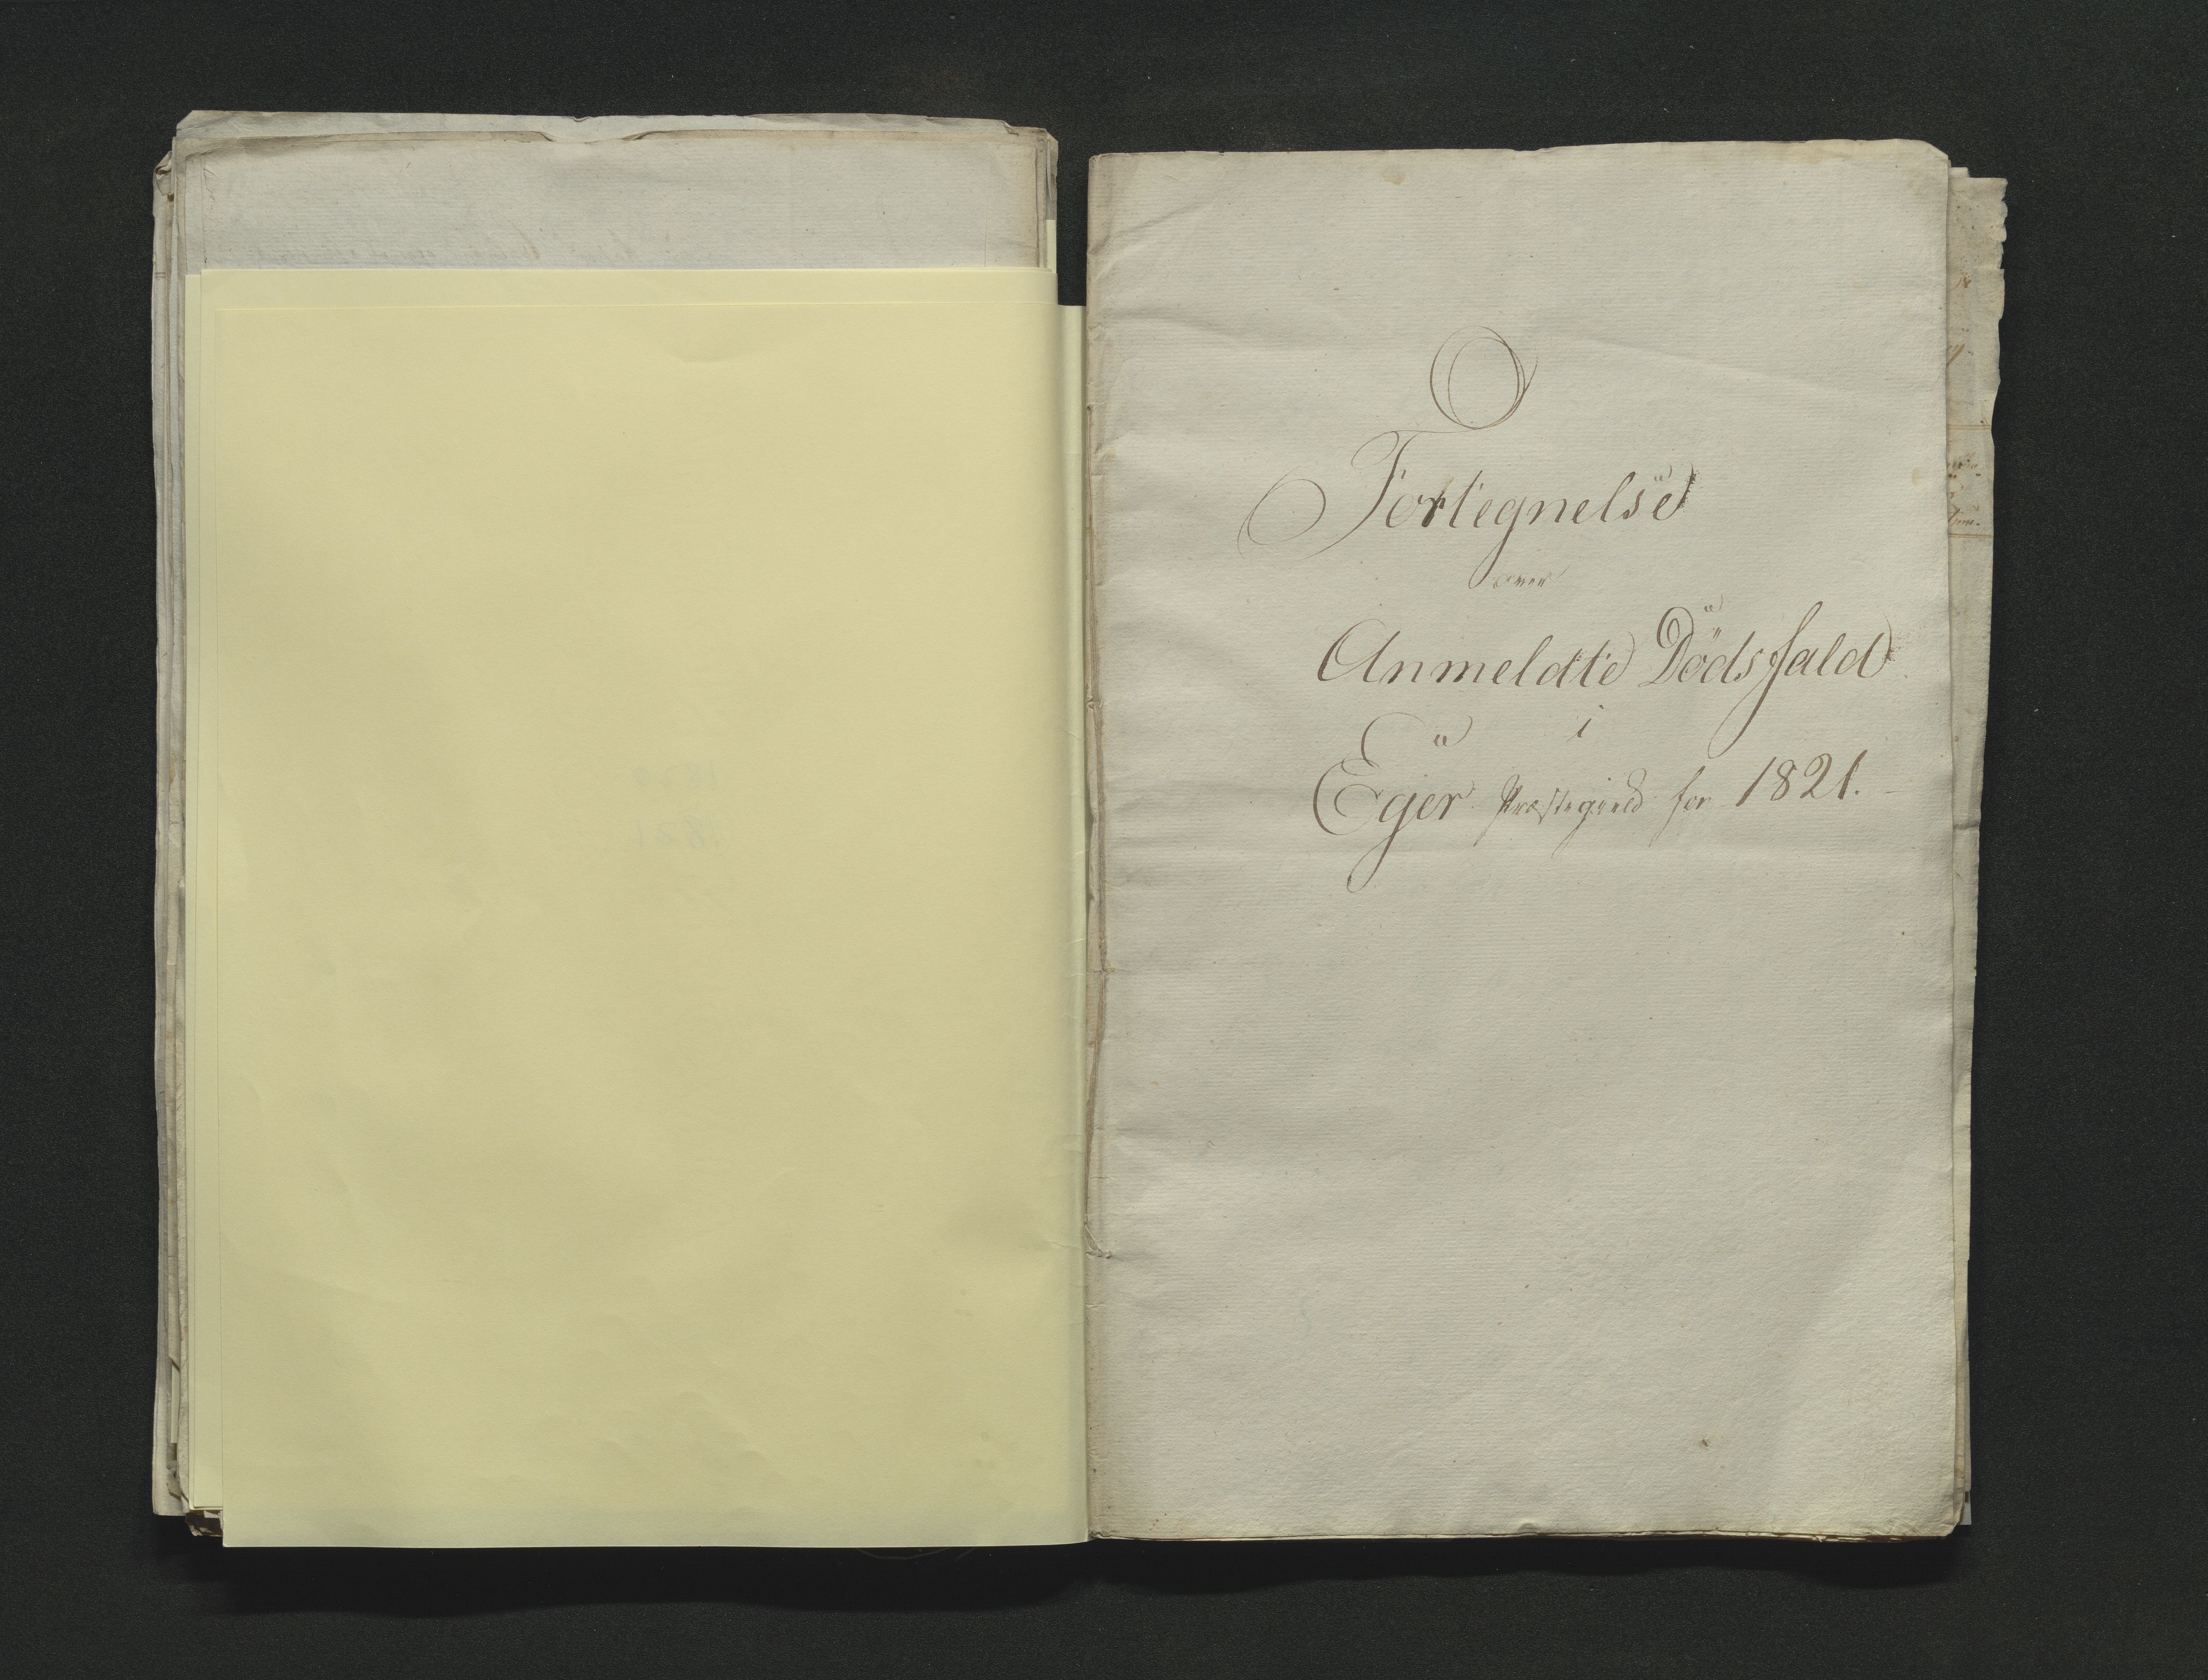 Fortegnelse
over
Anmeldte Dödsfald
i
Eger Præstegield for 1821.